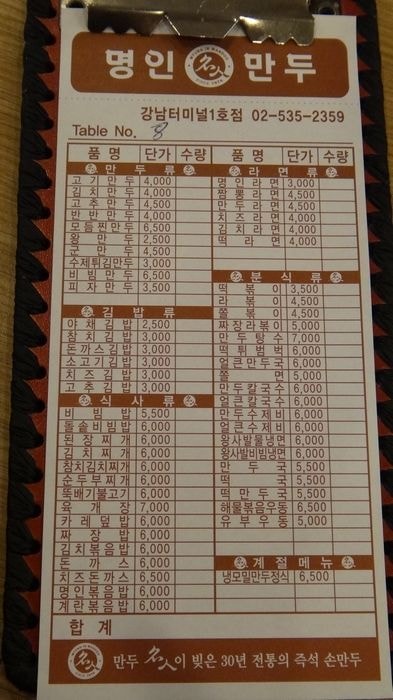 명인 名人 만두
강남터미널1호점 02-535-2359
Table No. 8
품 명 단가 수량
만 두 류
고 기 만 두 4,000
김 치 만 두 4,000
고 추 만 두 4,500
반 반 만 두 4,000
모 듬 찐 만 두 6,500
왕 만 두 2,500
군 만 두 4,500
수제튀김만두 3,000
비 빔 만 두 6,500
피 자 만 두 3,500
김 밥 류
야 채 김 밥 2,500
참 치 김 밥 3,000
돈 까 스 김 밥 3,000
소 고 기 김 밥 3,000
치 즈 김 밥 3,000
고 추 김 밥 3,000
식 사 류
비 빔 밥 5,500
돌솥비빔밥 6,000
된 장 찌 개 6,000
김 치 찌 개 6,000
참치김치찌개 6,000
순 두 부 찌 개 6,000
뚝배기불고기 6,000
육 개 장 7,000
카 레 덮 밥 6,000
짜 장 밥 6,000
김치볶음밥 6,000
돈 까 스 6,000
치즈돈까스 6,500
명인볶음밥 6,000
계란볶음밥 6,000
품 명 단가 수량
라 면 류
명 인 라 면 3,000
짬 뽕 라 면 4,500
만 두 라 면 4,500
치 즈 라 면 4,000
김 치 라 면 4,000
떡 라 면 4,000
분 식 류
떡 볶 이 3,500
라 볶 이 4,500
쫄 볶 이 4,500
짜장라볶이 5,000
만 두 탕 수 7,000
떡 튀 범 벅 6,000
얼큰만두국 6,000
쫄 면 5,000
만두칼국수 6,000
얼큰칼국수 6,000
만두수제비 6,000
얼큰수제비 6,000
왕사발물냉면 6,000
왕사발비빔냉면 6,000
만 두 국 5,500
떡 국 5,500
떡 만 두 국 5,500
해물볶음우동 6,500
유 부 우 동 5,000
계절메뉴
냉모밀만두정식 6,500
합 계
만두 名人이 빚은 30년 전통의 즉석 손만두